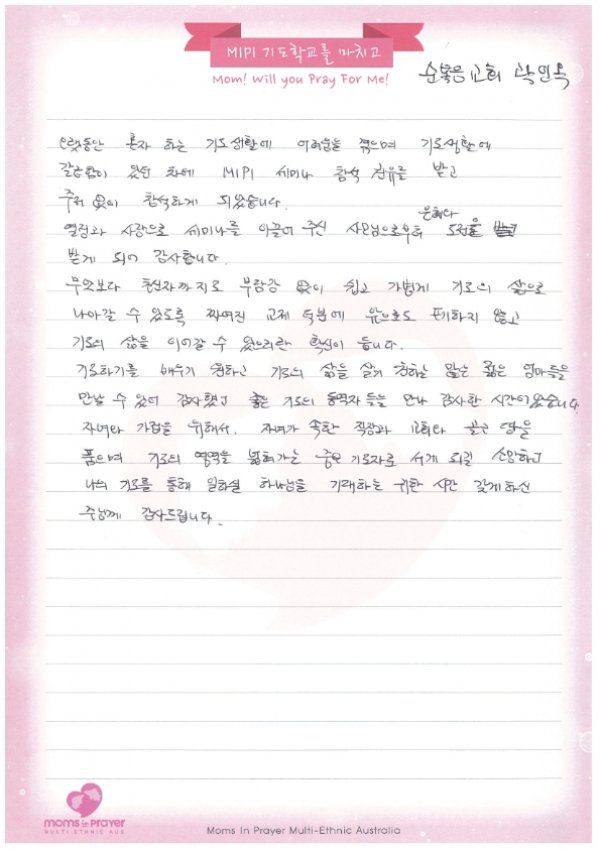 MIPI 기도학교를 마치고
Mom! Will you Pray For Me!
순복음교회 곽인옥
오랫동안 혼자 하는 기도생활에 어려움을 겪으며 기도생활에
갈급함이 있던 차에 MIPI 세미나 참석 권유를 받고
주저 없이 참석하게 되었습니다.
열정과 사랑으로 세미나를 이끌어 주신 사모님으로부터 은혜와 도전을
받게 되어 감사합니다.
무엇보다 부담감 없이 쉽고 가볍게 기도의 삶으로
나아갈 수 있도록 짜여진 교재 덕분에 앞으로도 포기하지 않고
기도의 삶을 이어갈 수 있으리란 확신이 듭니다.
기도하기를 배우기 원하고 기도의 삶을 살기 원하는 많은 젊은 엄마들을
만날 수 있어 감사했고 좋은 기도의 동역자들을 만나 감사한 시간이었습니다
자녀와 가정을 위해서, 자녀가 속한 직장과 교회와 열방을
품으며 기도의 영역을 넓혀가는 중보기도자로 서게 되길 소망하고
나의 기도를 통해 일하실 하나님을 기대하는 귀한 시간 갖게하신
주님께 감사드립니다.
moms in prayer
MULTI-ETHNIC AUS
Moms In Prayer Multi-Ethnic Australia